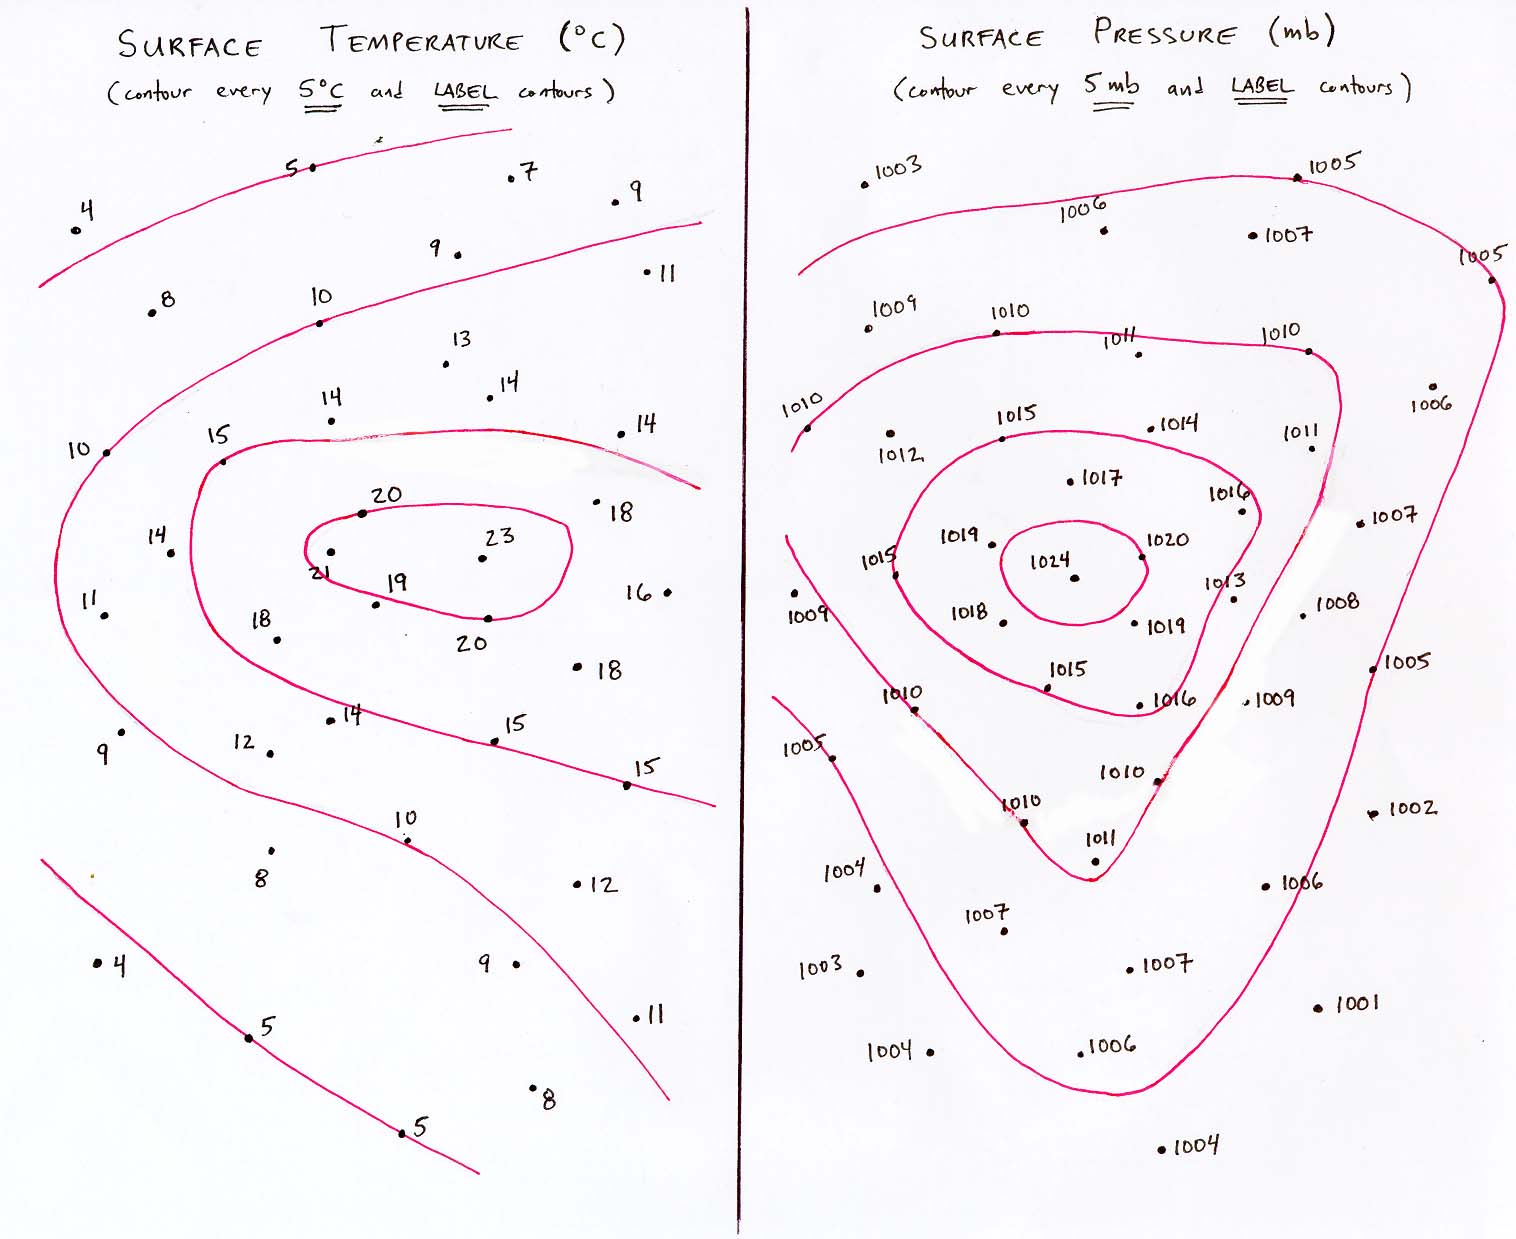 SURFACE TEMPERATURE (°C)
(contour every 5°C and LABEL contours)
5
7
9
4
9
11
8
10
13
14
14
14
15
10
20
18
14
23
21
19
16
11
18
20
18
14
15
12
9
15
10
8
12
4
9
11
5
8
5
SURFACE PRESSURE (mb)
(contour every 5 mb and LABEL contours)
1003
1005
1006
1007
1005
1009
1010
1011
1010
1006
1010
1015
1014
1011
1012
1017
1016
1007
1019
1020
1015
1024
1013
1009
1018
1019
1008
1015
1005
1010
1016
1009
1005
1010
1010
1002
1011
1004
1006
1007
1003
1007
1001
1004
1006
1004